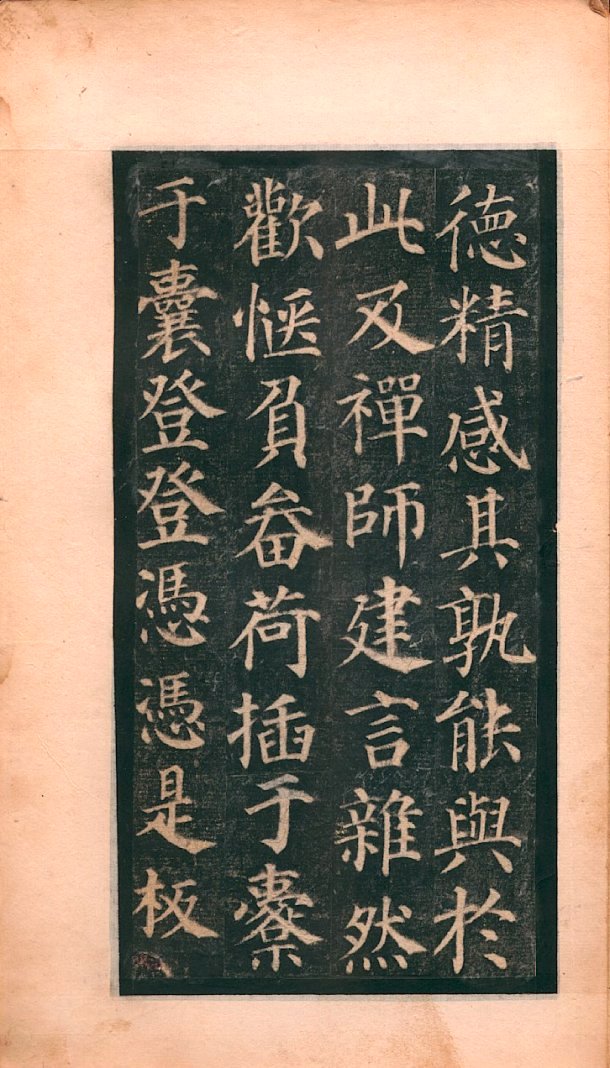 德精感其孰能與於
此及禪師建言雜然
歡愜負畚荷插于橐
于囊登登憑憑是板